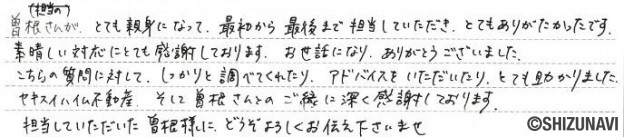 (担当の)
曽根さんが、とても親身になって、最初から最後まで担当していただき、とてもありがたかったです。
素晴しい対応にとても感謝しております。お世話になり、ありがとうございました。
こちらの質問に対して、しっかりと調べてくれたり、アドバイスをいただいたり、とても助かりました。
セキスイハイム不動産、そして曽根さんとのご縁に深く感謝しております。
担当していただいた曽根様に、どうぞよろしくお伝え下さいませ
©SHIZUNAVI